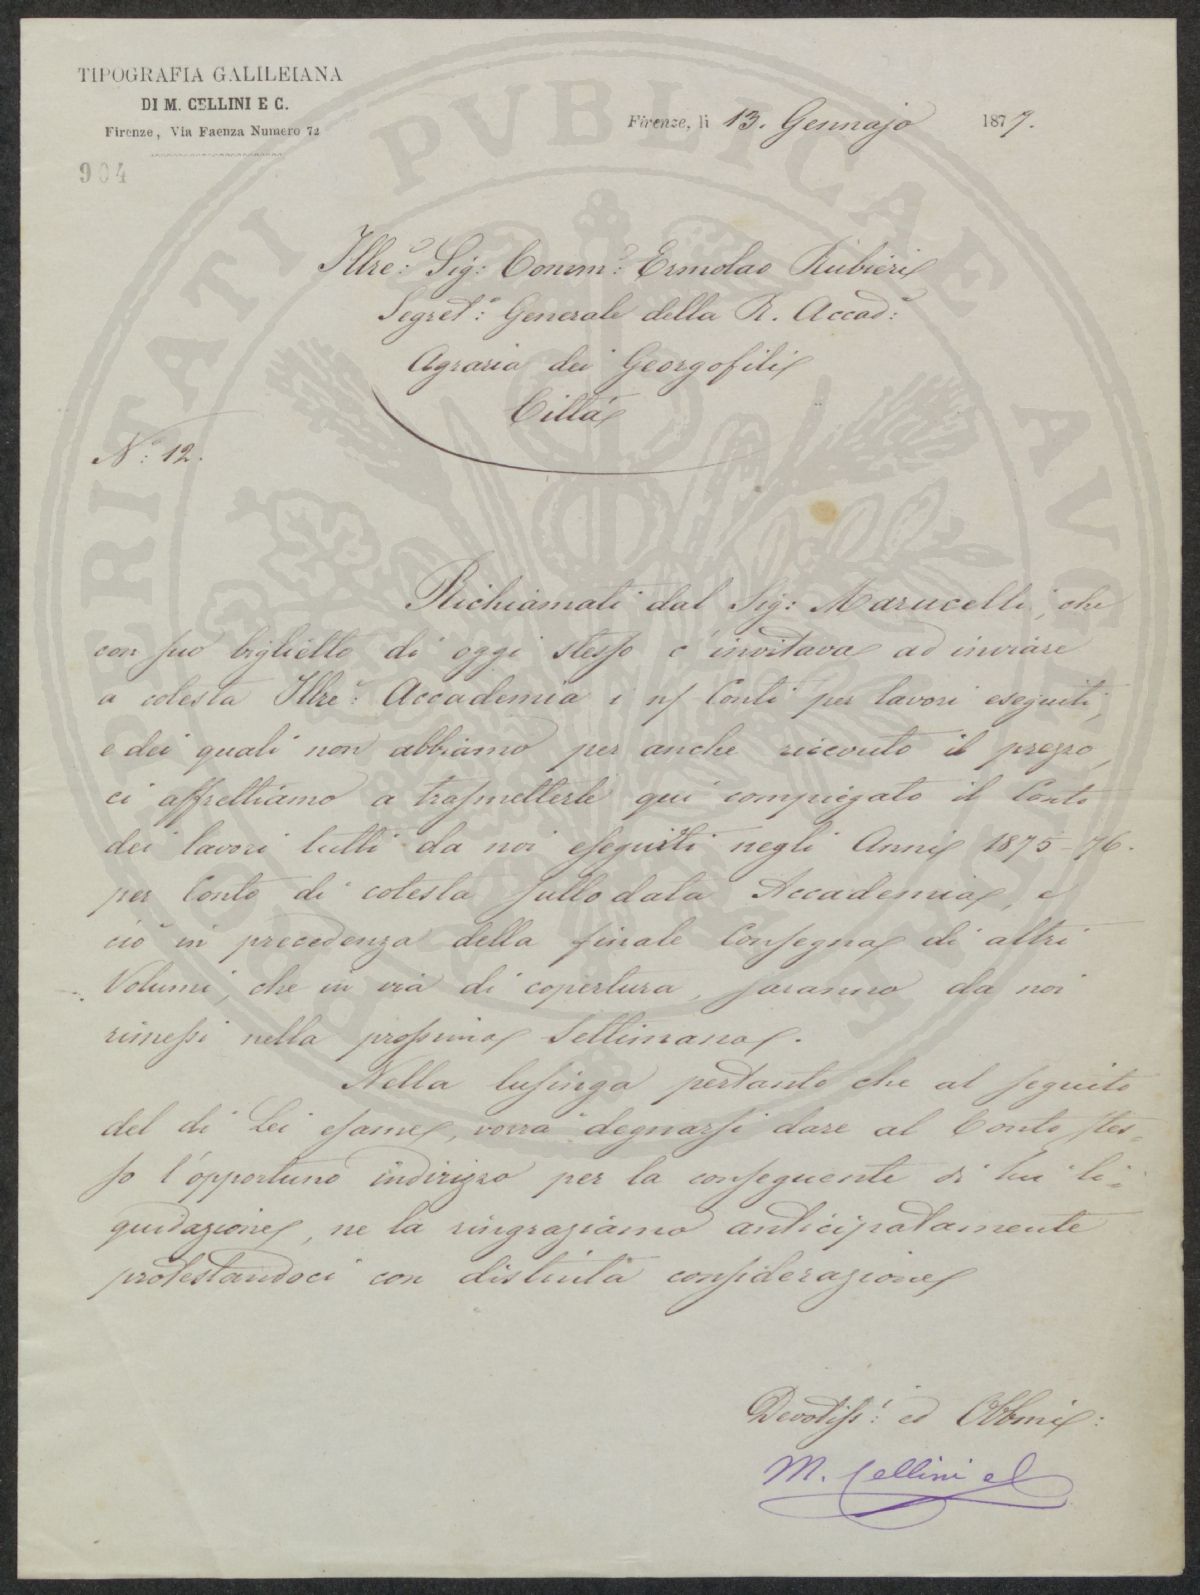 TIPOGRAFIA GALILEIANA
DI M. CELLINI E C.
Firenze, Via Faenza Numero 72
904
Firenze, li 13. Gennajo 1877.
Illre: Sig: Comm: Ermolao Rubieri
Segret: Generale della R. Accad:
Agraria dei Georgofili
Città
N: 12.
Richiamati dal Sig: Marucelli, che
con suo biglietto di oggi stesso c'invitava ad inviare
a cotesta Illre: Accademia i n/ Conti per lavori eseguiti,
e dei quali non abbiamo per anche riscevuto il prezzo,
ci affrettiamo a trasmetterle qui compiegato il Conto
dei lavori tutti da noi eseguiti negli Anni 1875-76.
per Conto di cotesta sullodata Accademia, e
ciò in precedenza della finale Consegna di altri
Volumi, che in via di copertura, saranno da noi
rimessi nella prossima Settimana.
Nella lusinga pertanto che al seguito
del di Lei esame, vorrà degnarsi dare al Conto stes-
so l'opportuno indirizzo per la conseguente di lui li-
quidazione, ne la ringraziamo anticipatamente
protestandoci con distinta considerazione
Devotiss: ed Obbmi:
M. Cellini e C
PROSPERITATI PVBLICAE AVGENDAE